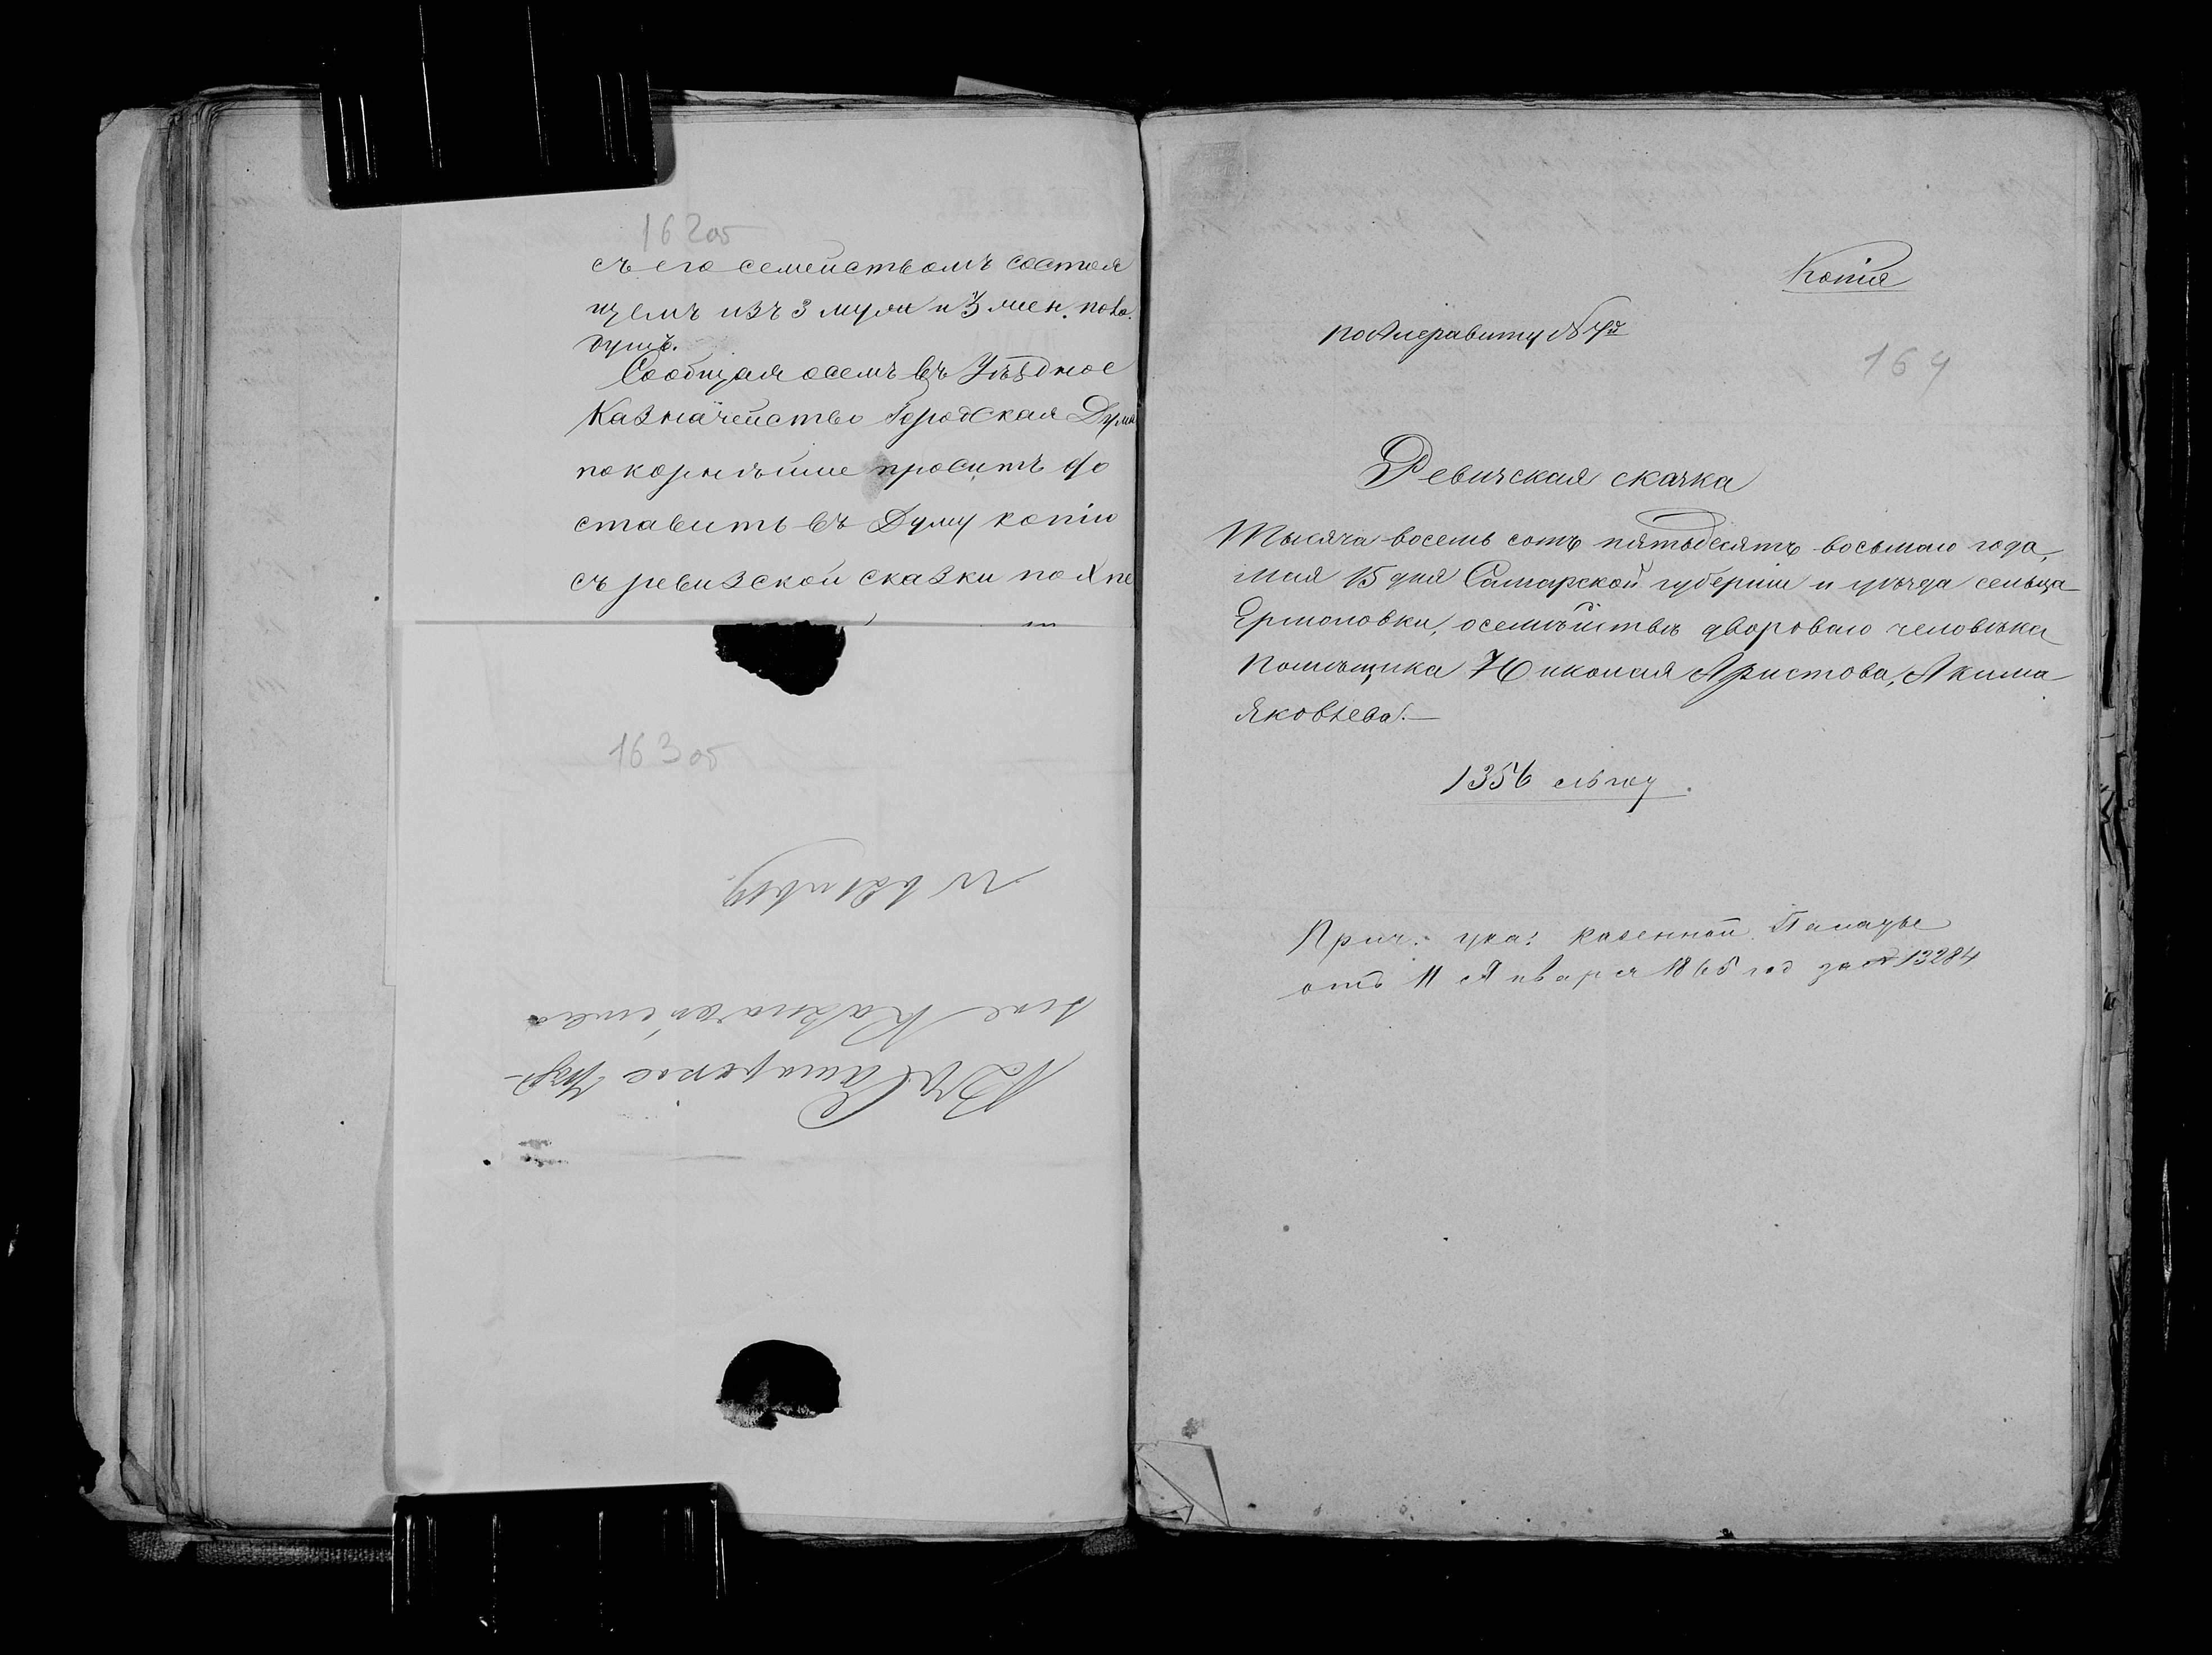 162об
съ его семействомъ состоя
щемъ изъ 3 муж и 3 жен. пола
душъ.
Сообщая о семъ въ Уѣздное
Казначейство Городская Дума
покорнѣйше проситъ до
ставить въ Думу копію
съ ревизской сказки по
163об
Въ Самарское Уѣзд-
ное Казначейство
Копія
по Алфавиту №
164
Ревизская скажка
Тысяча восемь сотъ пятьдесятъ восьмаго года,
мая 15 дня Самарской губерніи и уѣзда сельца
Ермоловки, о семѣйствѣ двороваго человѣка
помѣщика Николая Аристова, Акима
Яковлева.—
1356
Прич: ука: казенной Палаты
отъ 11 Января 1865 год за № 13284